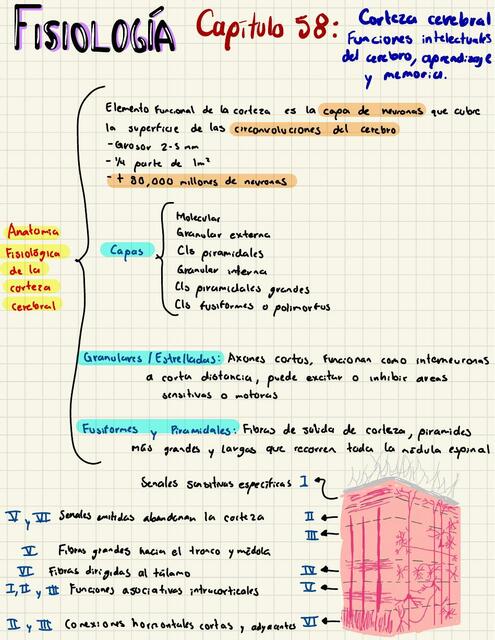 FISIOLOGÍA Capítulo 58:
Corteza cerebral
Funciones intelectuales
del cerebro, aprendizaje
y memoria.
Elemento funcional de la corteza es la capa de neuronas que cubre
la superficie de las circonvoluciones del cerebro
- Grosor 2-5 mm
- 1/4 parte de 1m²
- + 80,000 millones de neuronas
Anatomia
Fisiológica
de la
corteza
cerebral
Capas
Molecular
Granular externa
Cls piramidales
Granular interna
Cls piramidales grandes
Cls fusiformes o polimorfas
Granulares / Estrelladas: Axones cortos, funcionan como interneuronas
a corta distancia, puede excitar o inhibir areas
sensitivas o motoras
Fusiformes y Piramidales: Fibras de salida de corteza, piramides
más grandes y largas que recorren toda la médula espinal
Señales sensitivas específicas I
V y VI Señales emitidas abandonan la corteza II
III
V Fibras grandes hacia el tronco y médola
VI Fibras dirigidas al tálamo IV
I, II y III Funciones asociativas intracorticales V
II y III Conexiones horizontales cortas y adyacentes VI